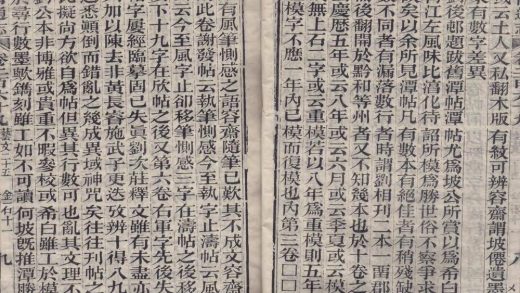 國云土人又私翻木版有紋可辨容齋謂坡僊遺墨
有數字差異
後邨題跋舊潭帖潭帖尤爲坡公所賞以爲希白
江左風味比淯化待詔所模爲勝世俗不察爭求
矣以余所見潭帖凡有數本有絕佳者有稍殘缺
數不同者有漏落數行者時謂劉相刊二本一㽞郡
後翻開於黔和等州者又不知幾本也於十卷之
慶厯五年或云八年或云六月或云季夏或云模
無上石二字或云重模若以八年爲重模則五年
模字不應一年內已模而復模也內第三卷□□
有風筆惻感之語容齋隨筆已歎其不成文容齋
此卷謝發帖云執筆惻感今至執字止濤帖云風
云今至風字止却移筆惻感三字在濤帖之後移
下十九字在放帖之後又第六卷右軍字先後失
字屢經臨摹固已失眞劉次莊釋文雖有未盡亦
加以陳去非黃長睿施武子更迭攷辨十得八九
悉顚倒而錯亂之幾成異域神呪矣往往刊帖之
劉公本非博雅或貴重不暇參校或希白雖工於模
擬尚方欲自爲帖但異其行數可也亂其文理不
有行數墨歟鐫刻雖工如不可讀何坡旣推潭勝
藝文二十五 金石十一 九